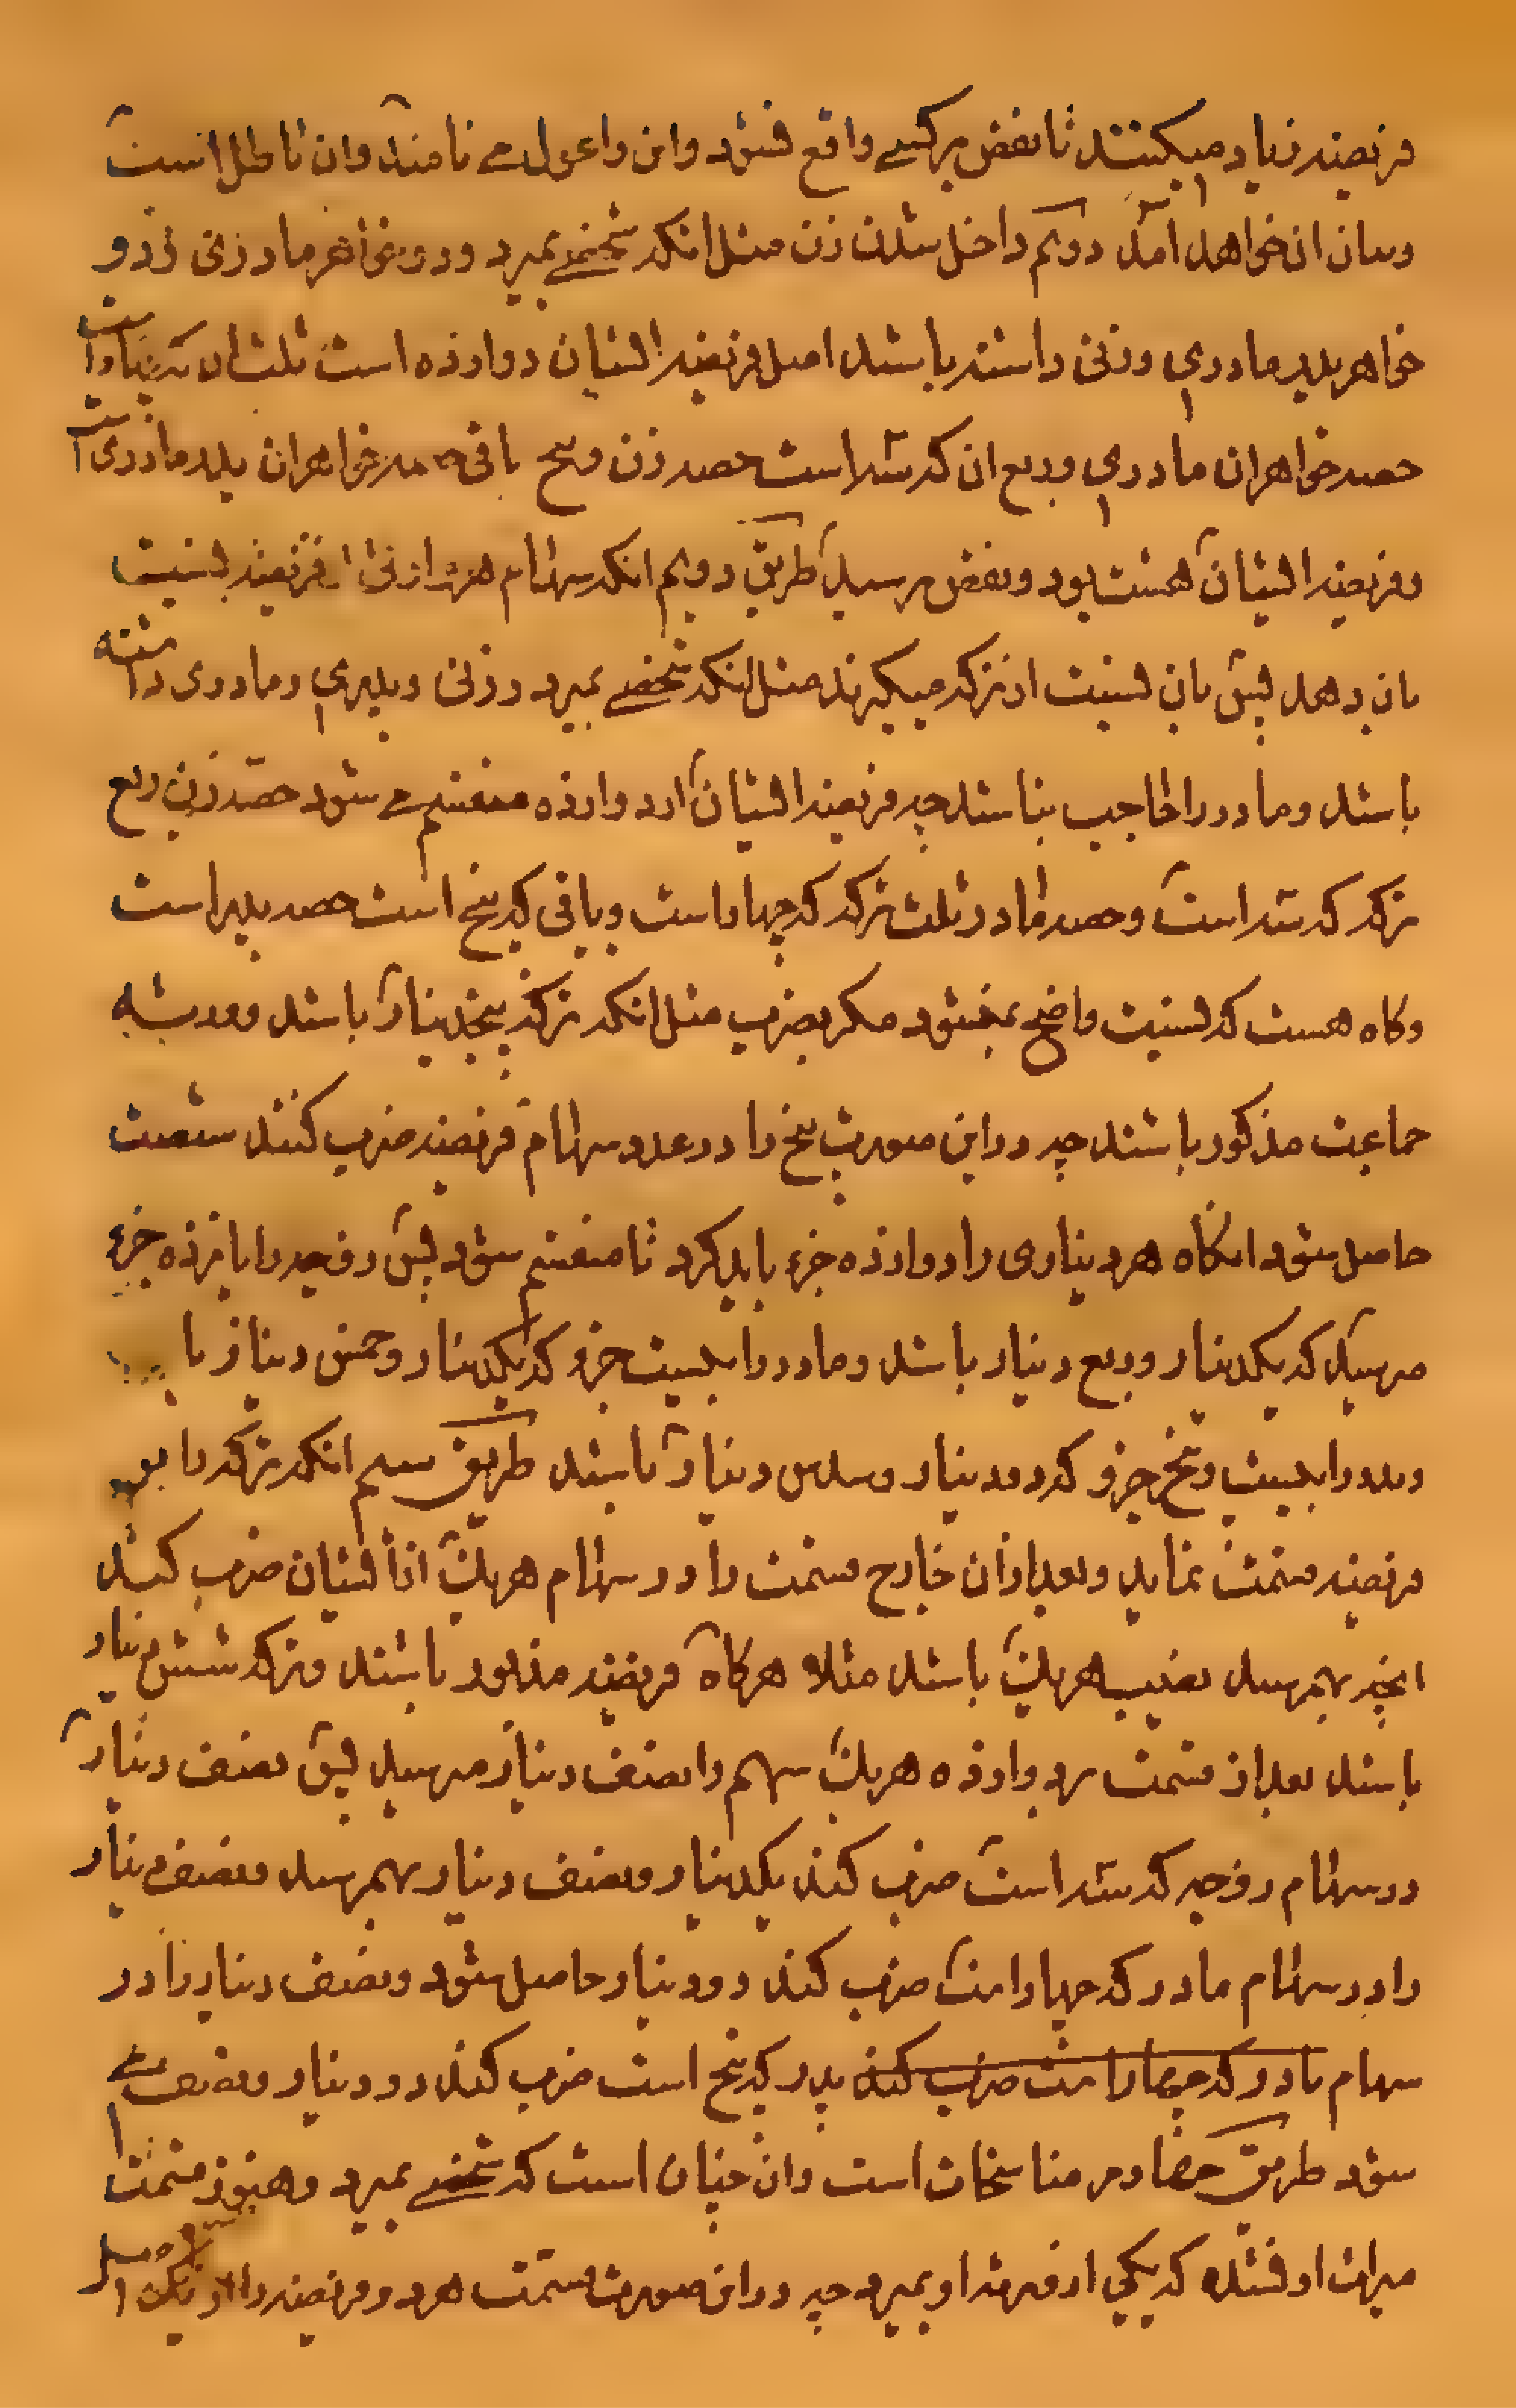 فریضه زیاد میکنند تا نقص بر کسی واقع نشود و این را عول می نامند و آن باطل است
و بیان آن خواهد آمد دویم داخل شدن زن مثل انکه شخصے بمیرد و دو خواهر مادرزنی و دو
خواهر پدر مادری و زنی داشته باشد اصل فریضه ایشان دوازده است ثلث آن که چهار است
حصه خواهران مادری و ربع ان که سه است حصه زن و پنج باقی حصه خواهران پدر مادری است
و فریضه ایشان هشت بود و نقص رسید طریق دویم انکه سهام هر وارثی از فریضه نسبت
بان دهد پس بان نسبت از ترکه میگیرند مثل انکه شخصے بمیرد و زنی و پدری و مادری داشته
باشد و مادر را حاجب نباشد چه فریضه ایشان از دوازده منقسم مے شود حصه زن ربع
ترکه که سه است و حصه مادر ثلث ترکه که چهار است و باقی که پنج است حصه پدر است
و کاه هست که نسبت واضح نمیشود مکر بضرب مثل انکه ترکه پنجدینار باشد و ورثه
جماعت مذکور باشند چه در این صورت پنج را در عدد سهام فریضه ضرب کنند شصت
حاصل شود انکاه هر دیناری را دوازده جزء باید کرد تا منقسم شود پس زوجه را پانزده جزء
میرسد که یکدینار و ربع دینار باشد و مادر را بیست جزء که یکدینار و خمس دینار با
و پدر را بیست و پنج جزو که دو دینار و سدس دینار باشد طریق سیم انکه ترکه را بر
فریضه قسمت نماید و بعد از ان خارج قسمت را در سهام هریک از ایشان ضرب کنند
انچه بهمرسد نصیب هریک باشد مثلا هرکاه فریضه مذکور باشند و ترکه شش دینار
باشد بعد از قسمت بر دوازده هریک سهم را نصف دینار میرسد پس نصف دینار
در سهام زوجه که سه است ضرب کند یکدینار و نصف دینار بهمرسد و نصف دینار
را در سهام مادر که چهار است ضرب کند دو دینار حاصل شود و نصف دینار را در
سهام مادر که چهار است ضرب کند پدر که پنج است ضرب کند دو دینار و نصف مے
شود طریق چهارم مناسخات است و ان چنان است که شخصے بمیرد و هنوز قسمت
میراث او نشده که یکی از ورثه او بمیرد چه در این صورت قسمت هر دو فریضه را از یک اصل